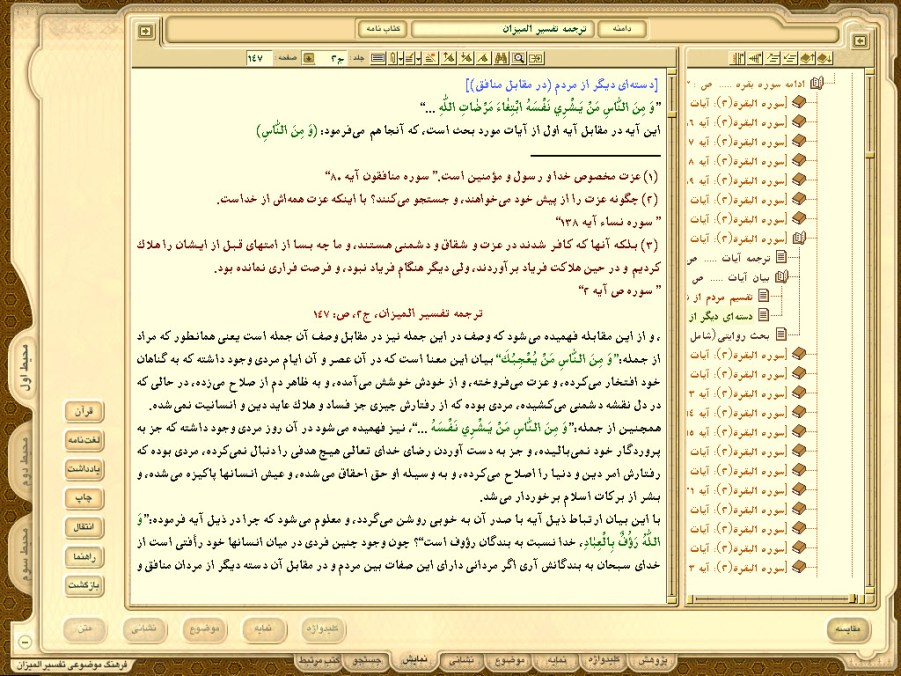 دامنه
ترجمه تفسیر المیزان
کتاب نامه
جلد: ج۲ صفحه ۱۴۷
[دسته‌ای دیگر از مردم (در مقابل منافق)]
"وَ مِنَ النَّاسِ مَنْ یَشْرِی نَفْسَهُ ابْتِغَاءَ مَرْضَاتِ اللَّهِ ..."
این آیه در مقابل آیه اول از آیات مورد بحث است، که آنجا هم می‌فرمود: (وَ مِنَ النَّاسِ)
(۱) عزت مخصوص خدا و رسول و مؤمنین است." سوره منافقون آیه ۸۰"
(۲) چگونه عزت را از پیش خود می‌خواهند، و جستجو می‌کنند؟ با اینکه عزت همه‌اش از خداست.
" سوره نساء آیه ۱۳۸"
(۳) بلکه آنها که کافر شدند در عزت و شقاق و دشمنی هستند، و ما چه بسا از امتهای قبل از ایشان را هلاک
کردیم و در حین هلاکت فریاد برآوردند، ولی دیگر هنگام فریاد نبود، و فرصت فراری نمانده بود.
" سوره ص آیه ۳"
ترجمه تفسیر المیزان، ج۲، ص: ۱۴۷
، و از این مقابله فهمیده می‌شود که وصف در این جمله نیز در مقابل وصف آن جمله است یعنی همانطور که مراد
از جمله:"وَ مِنَ النَّاسِ مَنْ یُعْجِبُكَ" بیان این معنا است که در آن عصر و آن ایام مردی وجود داشته که به گناهان
خود افتخار می‌کرده، و عزت می‌فروخته، و از خودش خوشش می‌آمده، و به ظاهر دم از صلاح می‌زده، در حالی که
در دل نقشه دشمنی می‌کشیده، مردی بوده که از رفتارش چیزی جز فساد و هلاك عاید دین و انسانیت نمی‌شده.
همچنین از جمله:"وَ مِنَ النَّاسِ مَنْ یَشْرِی نَفْسَهُ ..."، نیز فهمیده می‌شود در آن روز مردی وجود داشته که جز به
پروردگار خود نمی‌بالیده، و جز به دست آوردن رضای خدای تعالی هیچ هدفی را دنبال نمی‌کرده، مردی بوده که
رفتارش امر دین و دنیا را اصلاح می‌کرده، و به وسیله او حق احقاق می‌شده، و عیش انسانها پاکیزه می‌شده، و
بشر از برکات اسلام برخوردار می شد.
با این بیان ارتباط ذیل آیه با صدر آن به خوبی روشن می‌گردد، و معلوم می‌شود که چرا در ذیل آیه فرموده:"وَ
اللَّهُ رَؤُفٌ بِالْعِبَادِ، خدا نسبت به بندگان رؤوف است"؟ چون وجود چنین فردی در میان انسانها خود رأفتی است از
خدای سبحان به بندگانش آری اگر مردانی دارای این صفات بین مردم و در مقابل آن دسته دیگر از مردان منافق و
ادامه سوره بقره ..... ص :
[سوره البقرة(۲): آیات
[سوره البقرة(۲): آیه
[سوره البقرة(۲): آیه ۷
[سوره البقرة(۲): آیه ۸
[سوره البقرة(۲): آیه
[سوره البقرة(۲): آیات
[سوره البقرة(۲): آیات
[سوره البقرة(۲): آیات
ترجمه آیات ..... ص
بیان آیات ..... ص
تقسیم مردم از
دسته‌ای دیگر از
بحث روایتی(شامل
[سوره البقرة(۲): آیات
[سوره البقرة(۲): آیات
[سوره البقرة(۲): آیه ۳
[سوره البقرة(۲): آیه
[سوره البقرة(۲): آیه
[سوره البقرة(۲): آیات
[سوره البقرة(۲): آیات
[سوره البقرة(۲): آیه
[سوره البقرة(۲): آیات
[سوره البقرة(۲): آیات
[سوره البقرة(۲): آیات
[سوره البقرة(۲): آیه ۳
محیط اول
محیط دوم
محیط سوم
قرآن
لغت‌نامه
یادداشت
چاپ
انتقال
راهنما
بازگشت
مقایسه
کلیدواژه
نمایه
موضوع
نشانی
متن
پژوهش
کلیدواژه
نمایه
موضوع
نشانی
نمایش
جستجو
کتب مرتبط
فرهنگ موضوعی تفسیر المیزان